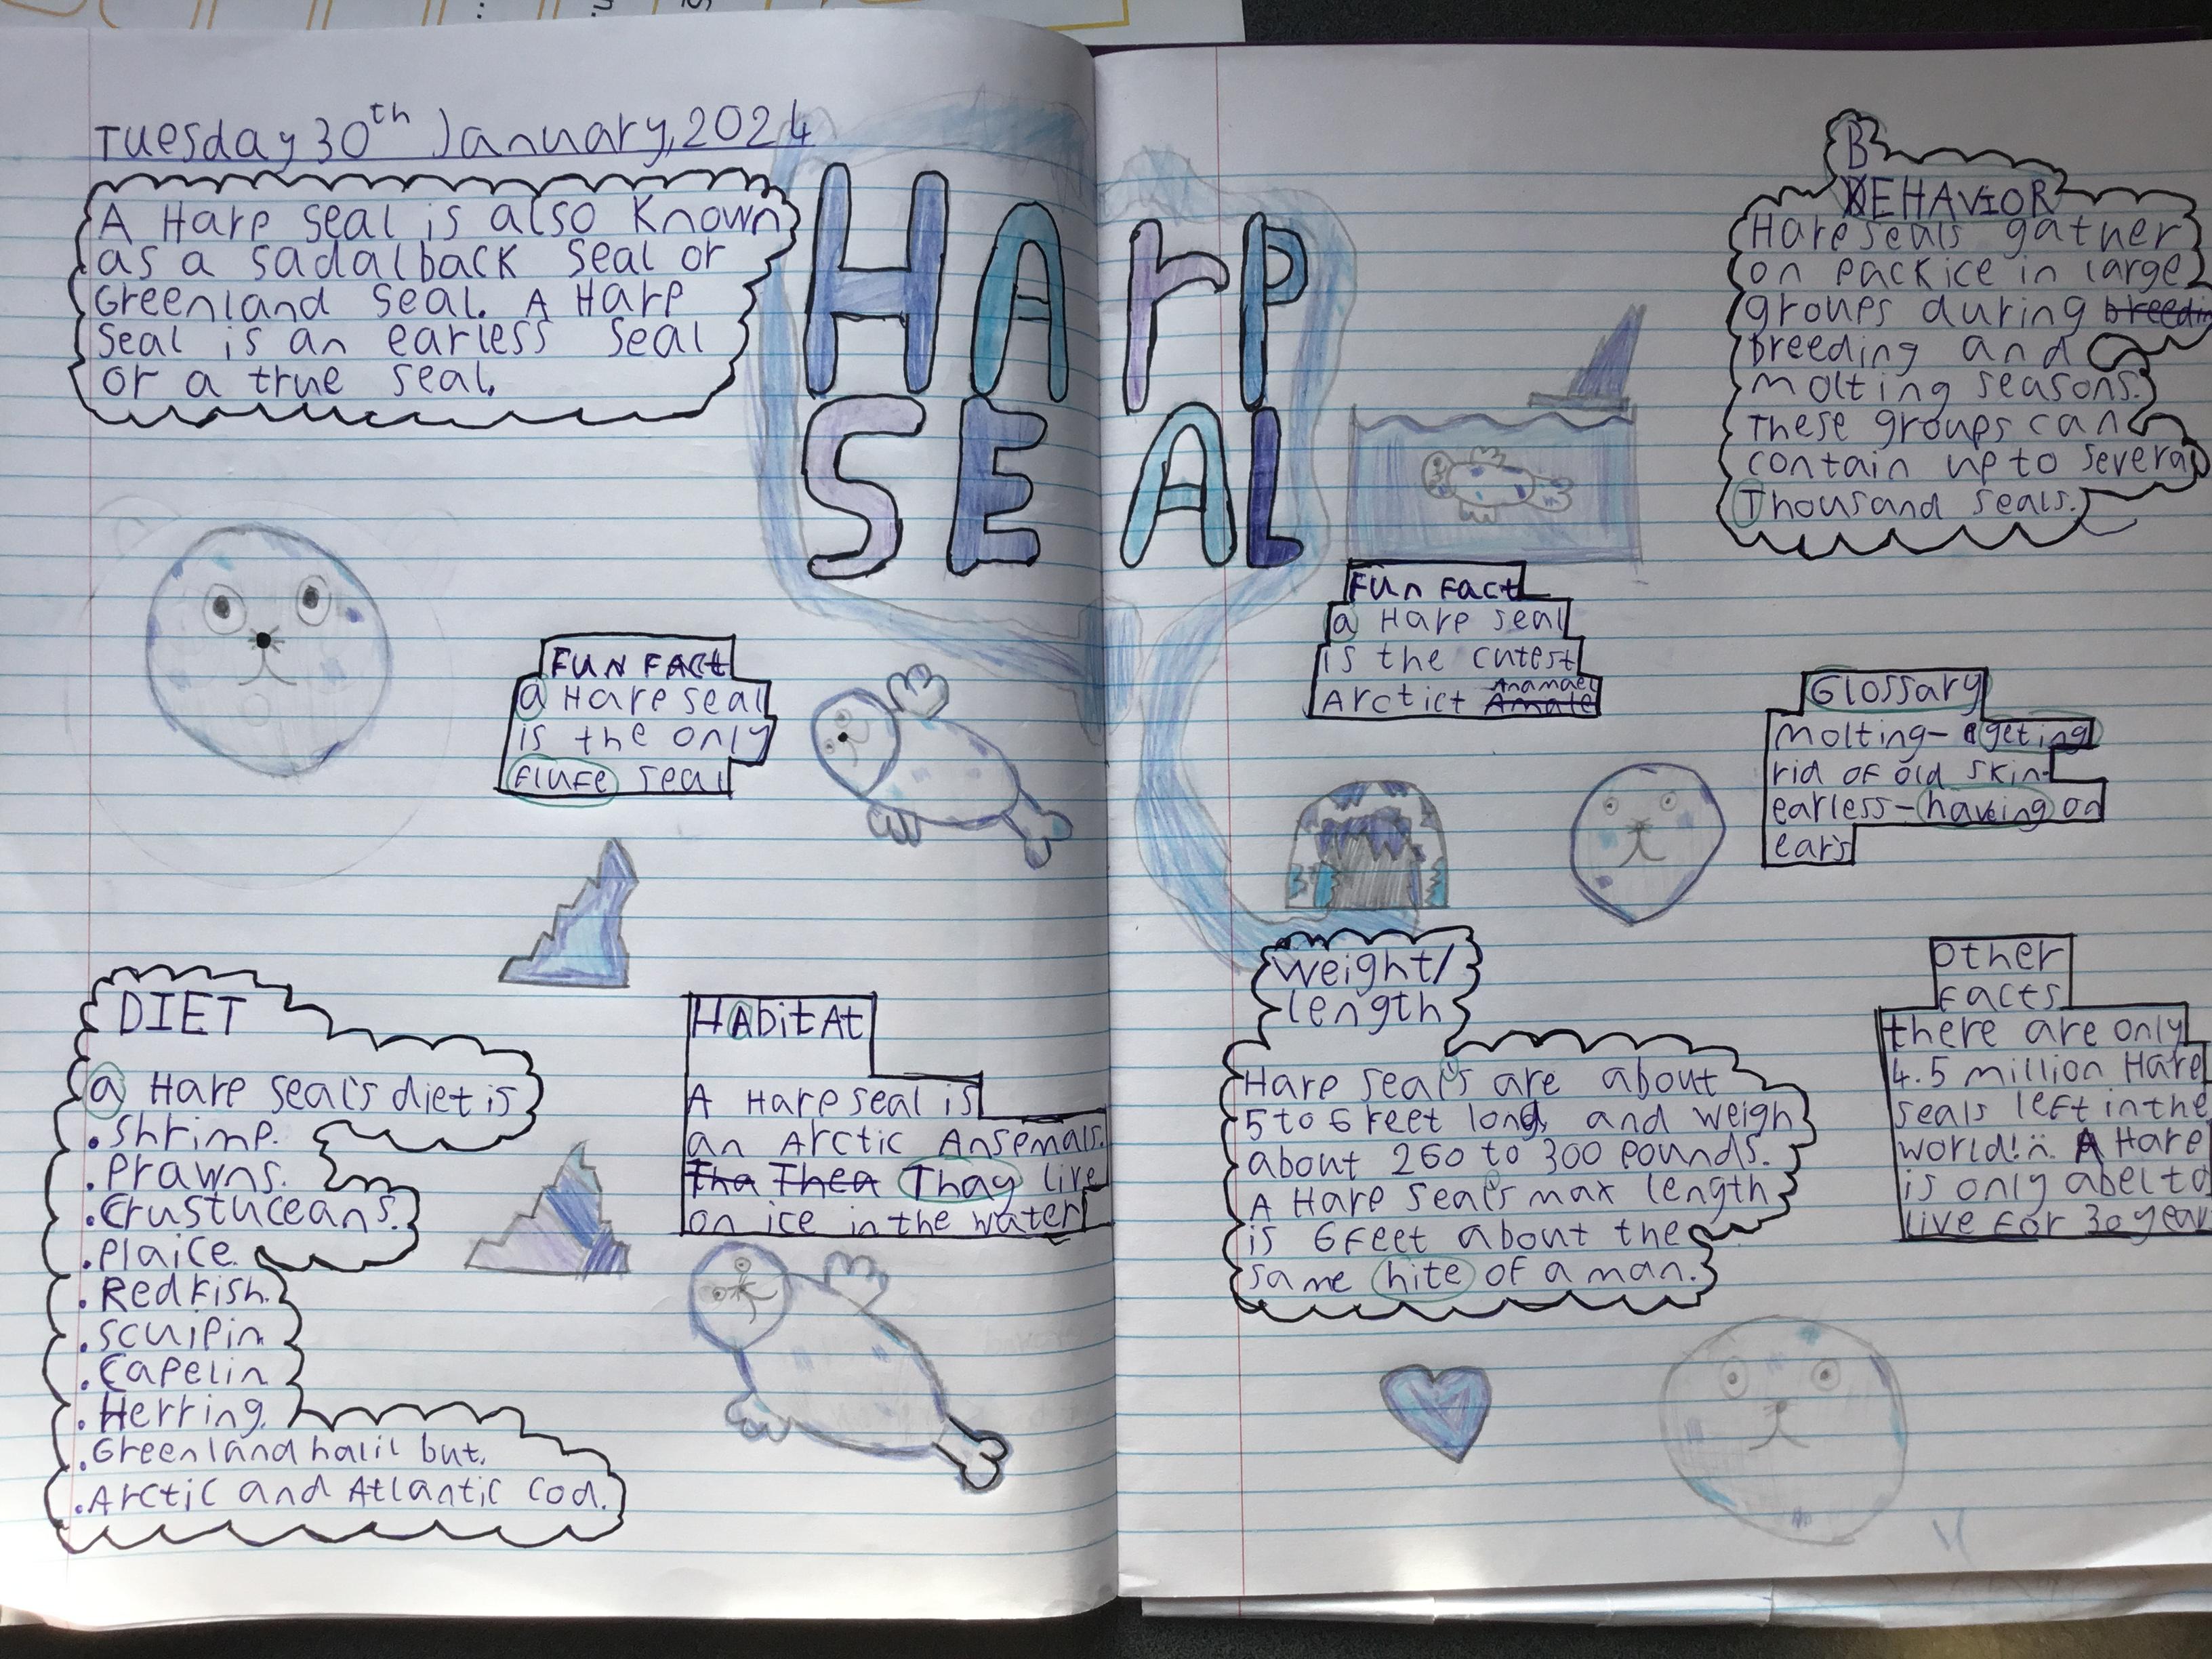 Tuesday 30th January, 2024
A Harp seal is also known
as a sadalback seal or
Greenland seal. A Harp
seal is an earless seal
or a true seal.
HArP
SEAL
FUN FACt
a Harp seal
is the only
flufe seal
DIET
a Harp seal's diet is
. shrimp.
. Prawns.
. Crustuceans.
. Plaice.
. Redfish.
. sculpin
. Capelin
. Herring.
. Greenland halil but.
. Arctic and Atlantic cod.
HAbitAt
A Harp seal is
an Arctic Ansemals.
Tha Thea Thay live
on ice in the water
BEHAVIOR
Harp seals gather
on pack ice in large
groups during breedin
breeding and
molting seasons.
These groups can
contain up to several
Thousand seals.
Fun Fact
a Harp seal
is the cutest
Arctict Amale Anamael
Glossary
Molting- geting
rid of old skin.
earless- having on
ears
Weight/
length
Harp seal's are about
5 to 6 feet long, and weigh
about 260 to 300 pounds.
A Harp seal's max length
is 6 feet about the
same hite of a man.
Other
Facts
there are only
4.5 million Harp
seals left in the
world!.. A Harp
is only abel to
live for 30 year